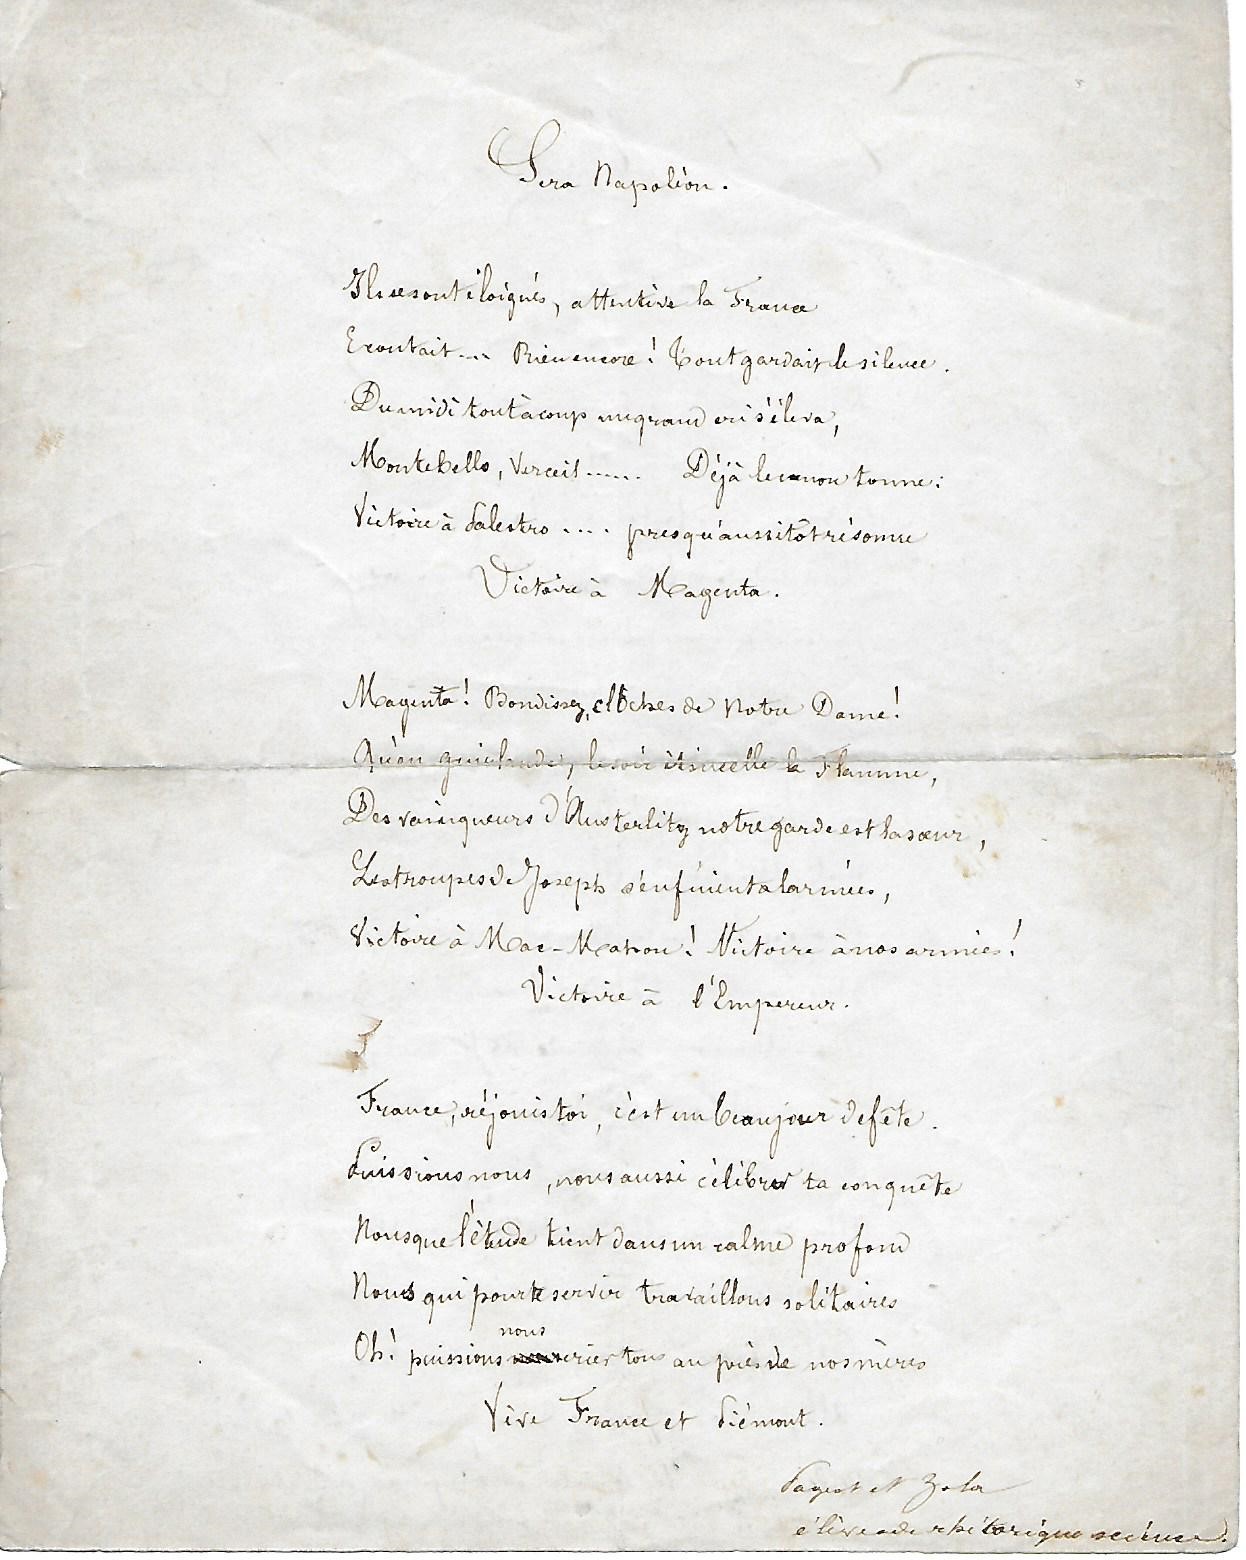 Sera Napoléon.
Ils se sont éloignés, attentive la France
Ecoutait... Rien encore! Tout gardait le silence.
Du midi tout à coup un grand cri s'éleva,
Montebello, Verceil...... Déjà le canon tonne:
Victoire à Palestro .... presqu'aussitôt résonne
Victoire à Magenta.
Magenta! Bondissez, clôches de Notre Dame!
Qu'en guirlande, le soir étincelle la Flamme,
Des vainqueurs d'Austerlitz notre garde est la sœur,
Les troupes de Joseph s'enfuient alarmées,
Victoire à Mac-Mahon! Victoire à nos armées!
Victoire à l'Empereur.
France, réjouis toi, c'est un beau jour de fête.
Puissions nous, nous aussi célébrer ta conquête
Nous que l'étude tient dans un calme profond
Nous qui pour te servir travaillons solitaires
Oh! puissions nous crier tous au près de nos mères
Vive France et Piémont.
et Zola
élèves de rhétorique science.